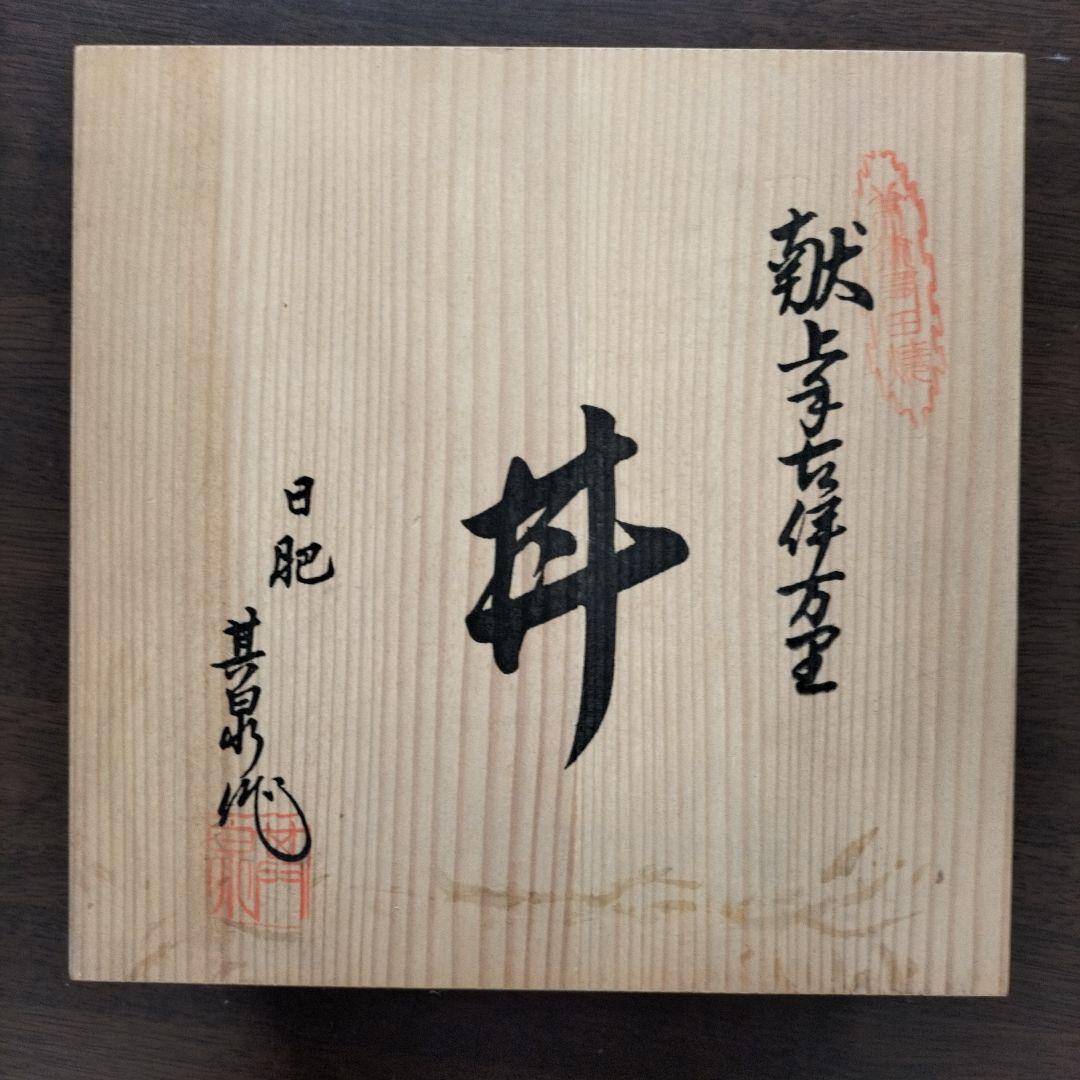 献上手古伊万里
丼
日肥
其泉作
其泉